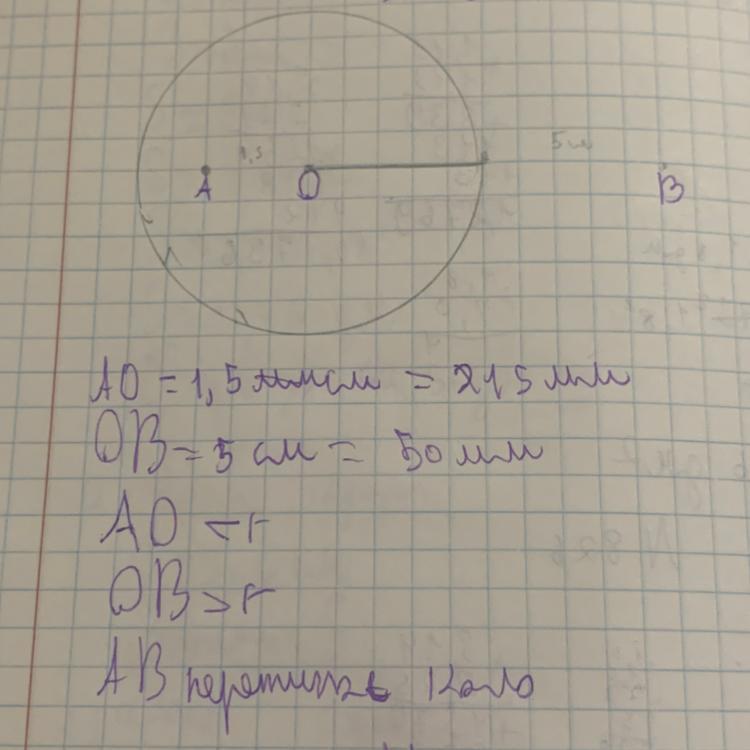 1,5 5см
A O B
AO = 1,5 см = 15 мм
OB = 5 см = 50 мм
AO < r
OB > r
AB перетинає коло